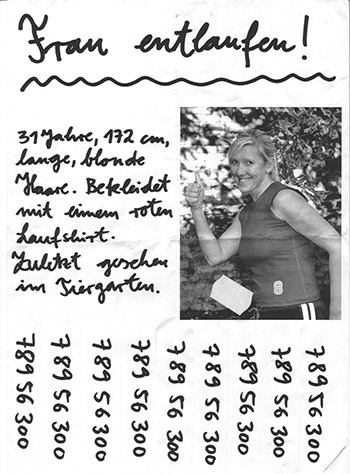 Frau entlaufen!
31 Jahre, 172 cm,
lange, blonde
Haare. Bekleidet
mit einem roten
Laufshirt.
Zuletzt gesehen
im Tiergarten.
789 56 300
789 56 300
789 56 300
789 56 300
789 56 300
789 56 300
789 56 300
789 56 300
789 56 300
8